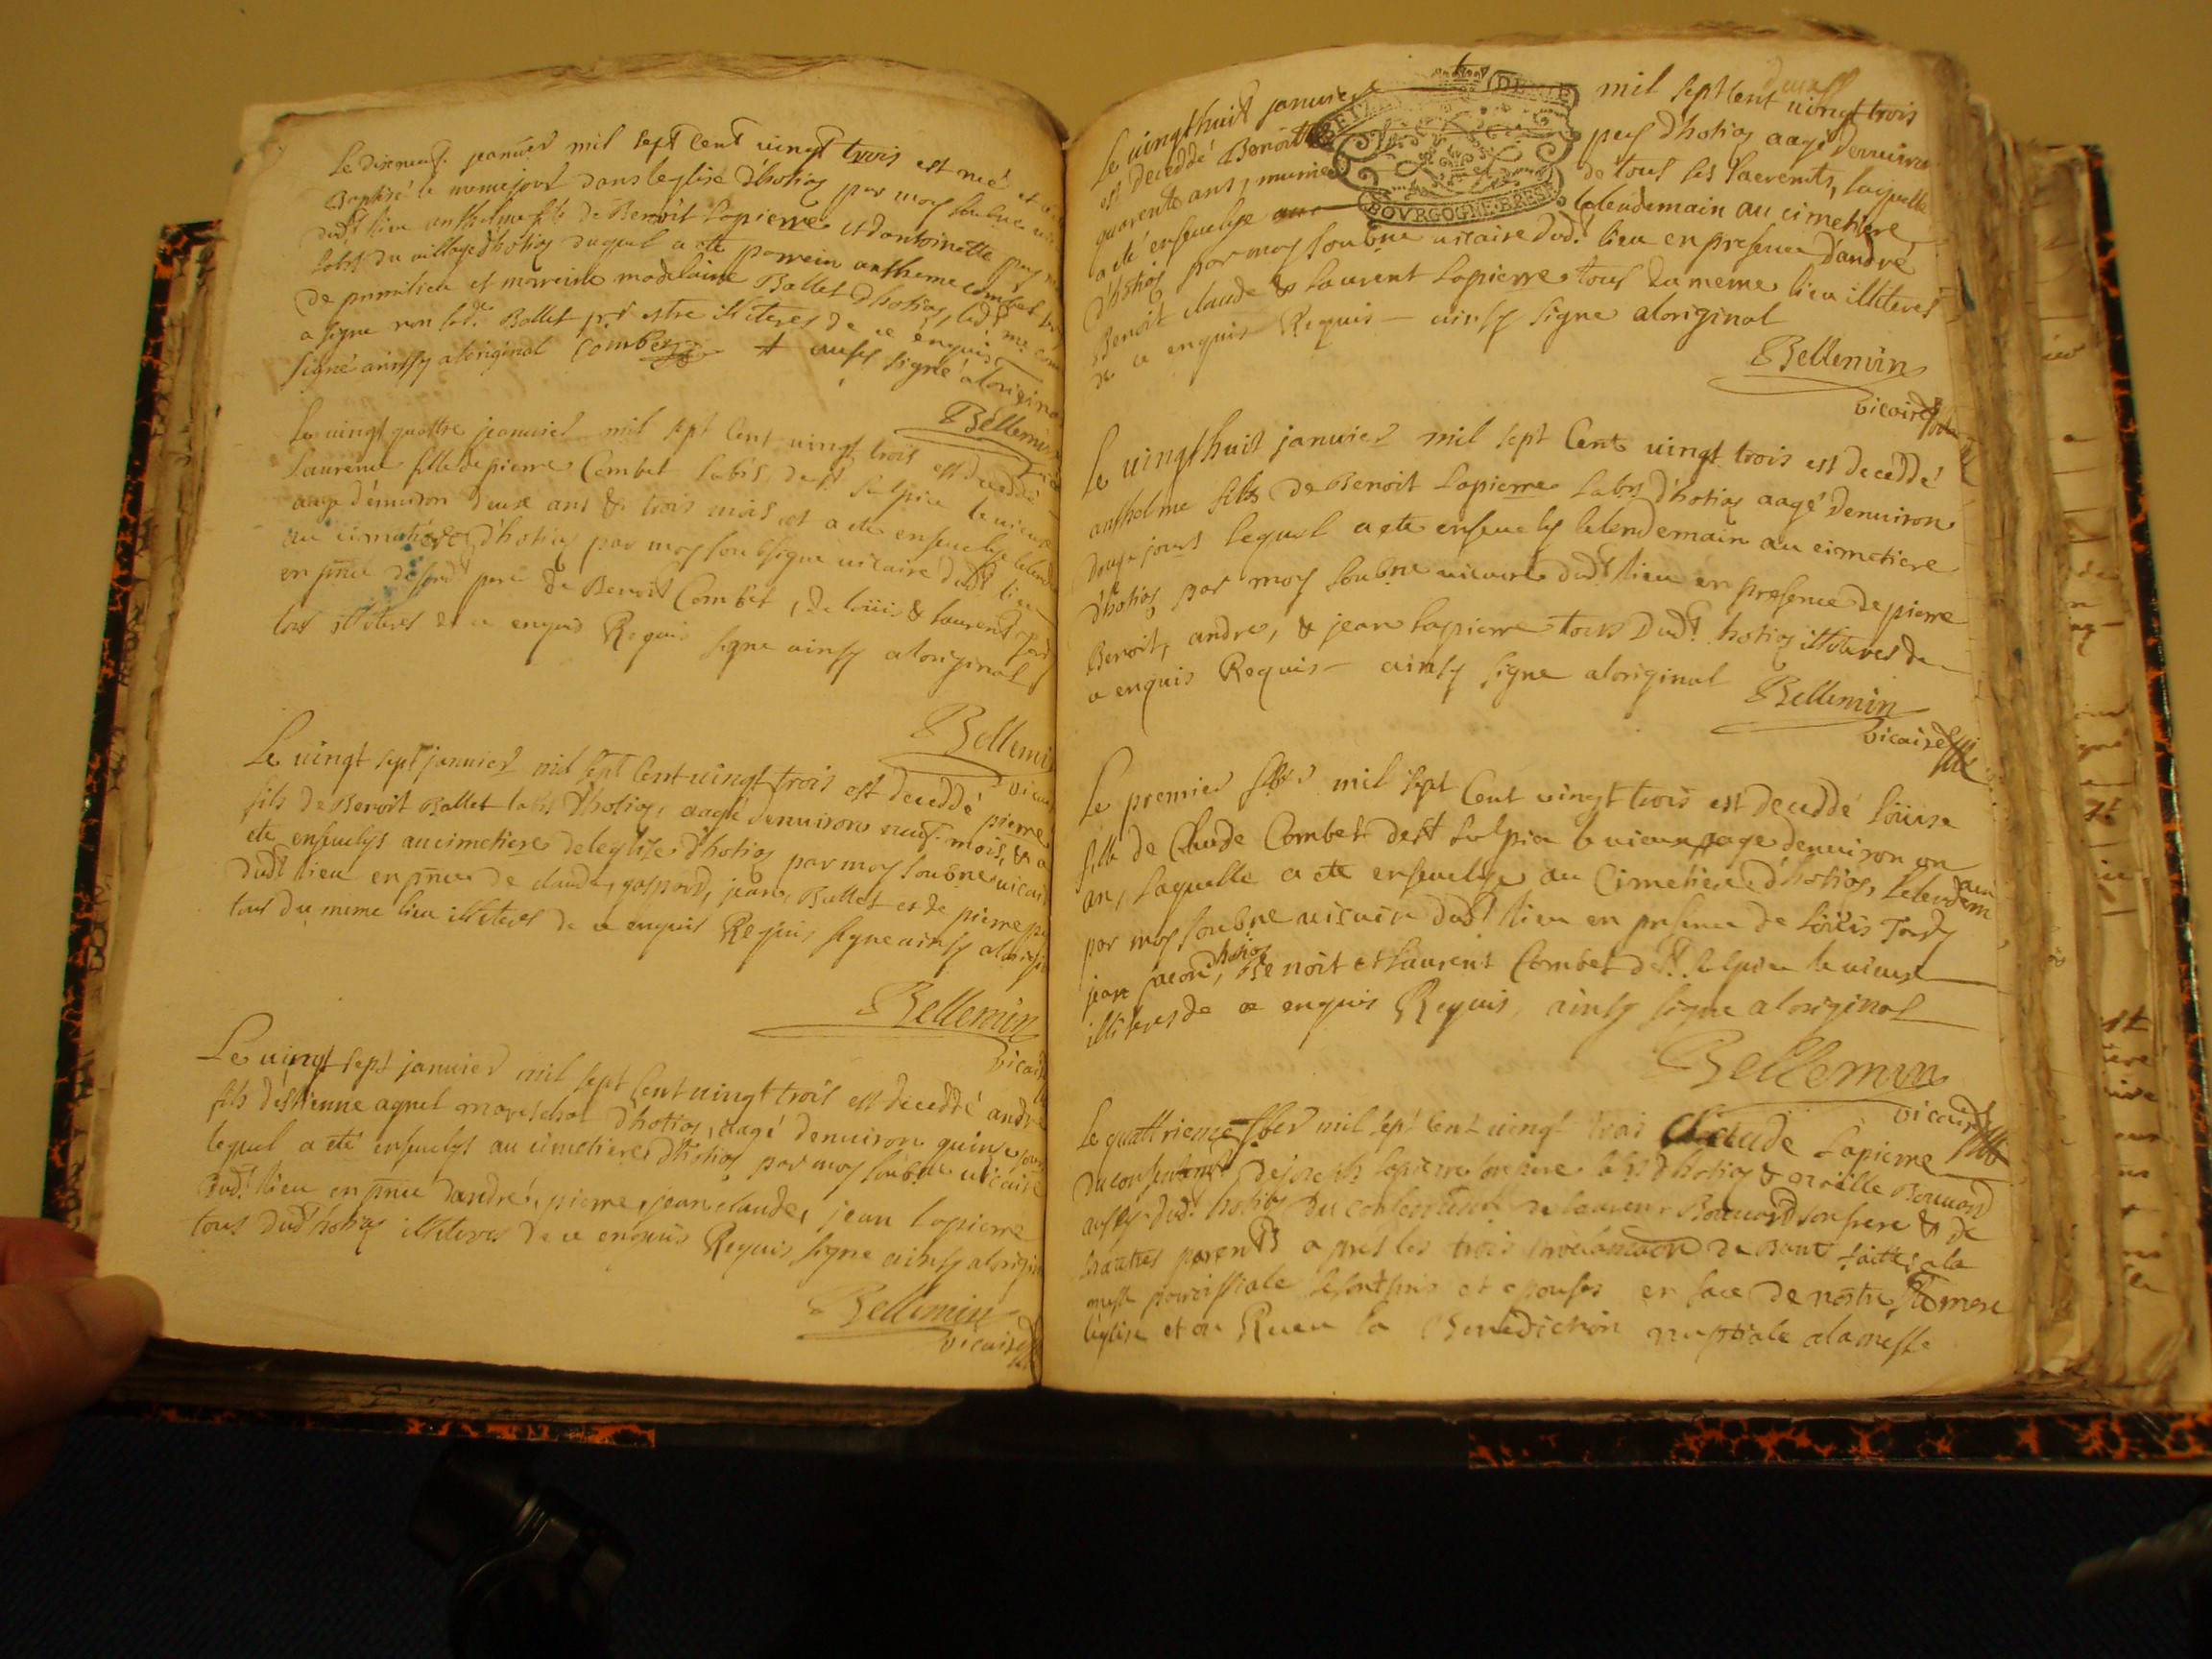 Le dixneuf janvier mil sept cent vingt trois est né et
Baptisé le meme jour dans leglise d'hotiag par moy
dudt lieu anthelme fils de Benoit Lapierre et dantoinette
labr du village d'hotiag duquel a ete parrein antheme combet
de premilieu et marreine madelaine Ballet d'hotiag, ledt
a signe non lade Ballet pr estre illiteres de ce enquis
signé ainssy aloriginal Combet + aussy signé aloriginal
Bellemin
Le vingt quattre janvier mil sept cent vingt trois est deceddé
Laurence fille de pierre Combet labr de st sulpice le vieux
aage d'environ deux ans & trois mois et a ete ensevelye
au cimetiere d'hotiag par moy soubsigne vicaire dudt lieu
en pnce de sondt pere de Benoit Combet, de loüis & laurent
tous illiteres de ce enquis Requis signe ainsy aloriginal
Bellemin
Le vingt sept janvier mil sept cent vingt trois est deceddé pierre
fils de Benoit Ballet labr d'hotiag, aagé denviron neuf mois, & a
ete ensevelys au cimetiere deleglise d'hotiag par moy soubne
dudt lieu en pnce de claude, gaspard, jean, Ballet et de pierre
tous du meme lieu illiteres de ce enquis Requis signe ainsy
Bellemin
vicaire
Le vingt sept janvier mil sept cent vingt trois est deceddé andre
fils d'estienne agnel mareschal d'hotiag, aagé denviron quinze jours
lequel a eté ensevelys au cimetiere d'hotiag par moy soubne vicaire
dudt lieu en pnce dandré, pierre, jean claude, jean lapierre
tous dudt hotiag illiteres de ce enquis Requis signe ainsy
Bellemin
vicaire
Le vingthuit janvier mil sept cent vingt trois
est deceddé Benoitte puy d'hotiag aagé denviron
quarente ans, munie de tous les sacremts, laquelle
a eté ensevelye le lendemain au cimetiere
d'hotiag par moy soubne vicaire dudt lieu en presence dandré
Benoit claude & laurent lapierre tous du meme lieu illiteres
de ce enquis Requis ainsy signe aloriginal
BOVRGOGNE BRESSE
Bellemin
vicaire
Le vingthuit janvier mil sept cent vingt trois est deceddé
anthelme fils de Benoit Lapierre labr d'hotiag aagé denviron
douze jours lequel a ete ensevely le lendemain au cimetiere
d'hotiag par moy soubne vicaire dudt lieu en presence de pierre
Benoit, andre, & jean lapierre tous dudt hotiag illiteres de
ce enquis Requis ainsy signe aloriginal
Bellemin
vicaire
Le premier mil sept cent vingt trois est deceddé Loüise
fille de Claude Combet de st sulpice le vieux aage denviron un
an, laquelle a ete ensevelye au Cimetiere d'hotiag, le lendemain
par moy soubne vicaire dudt lieu en presence de Loüis Tardy
jean d'hotiag, Benoit et laurent Combet de st sulpice le vieux
illiteres de ce enquis Requis, ainsy signe aloriginal
Bellemin
vicaire
Le quattrieme mil sept cent vingt trois Claude Lapierre
du consentemt de joseph lapierre son pere labr d'hotiag &
aussy dudt hotiag du consentement de laurent son frere & de
ses autres parents apres les trois de Bans faittes a la
messe parroissiale se sont pris et epousés en face de nostre Ste mere
leglise et on Receu la Benediction nuptiale alamesse